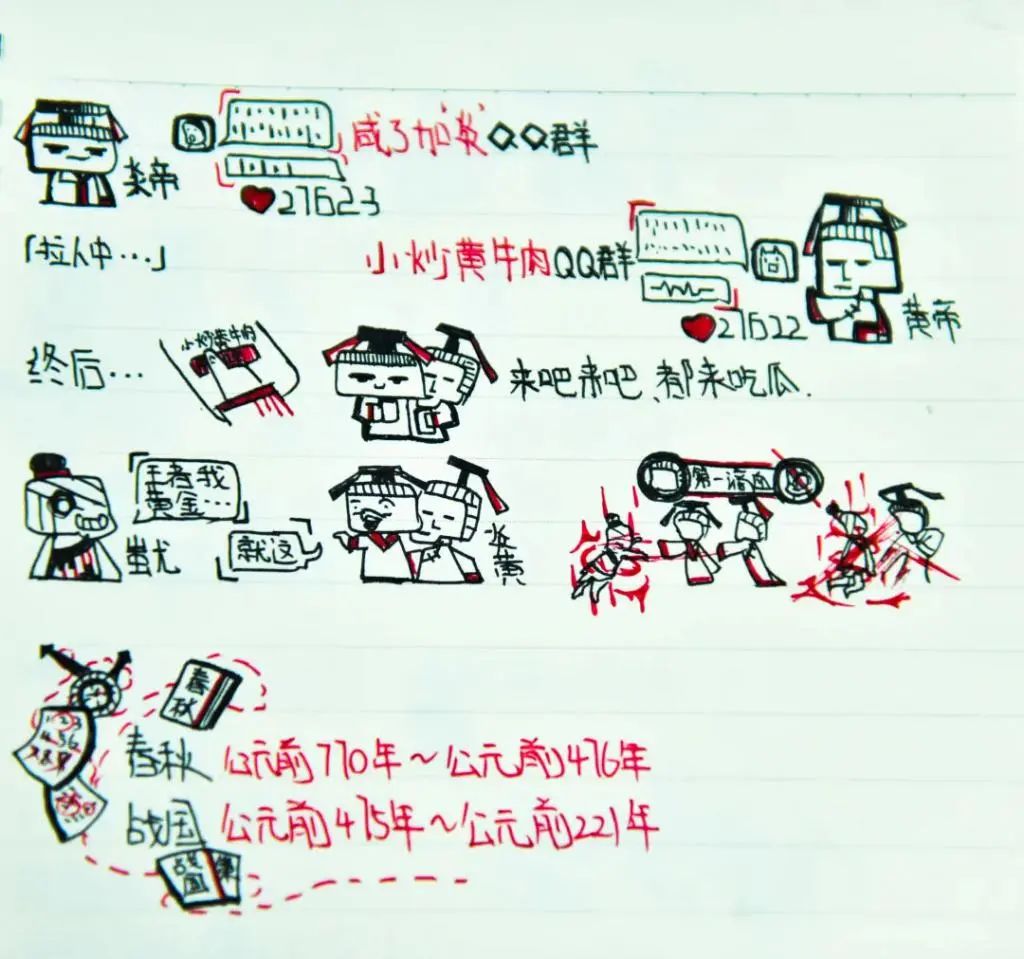 咸了加'炎'QQ群
炎帝
27623
「拉人中…」
小炒黄牛肉QQ群
27622
黄帝
终后…
小炒黄牛肉
来吧来吧、都来吃瓜.
王者我
黄金…
就这
蚩尤
炎黄
第一滴血
春秋
春秋 公元前770年~公元前476年
战国 公元前475年~公元前221年
战国